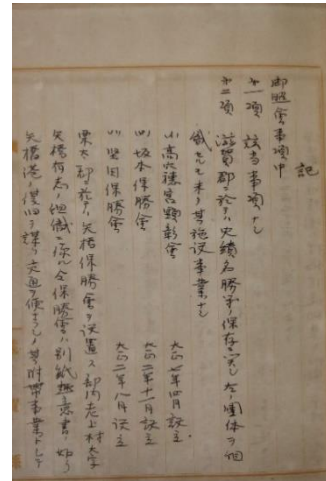 記
御照會事項中
第一項 該当事項ナシ
第二項 滋賀郡ニ於テハ史蹟名勝等ノ保存ニ関シ左ノ團体ヲ組
織セルモ未ダ其施設事業ナシ
(イ) 高穴穂宮顕彰會 大正七年四月設立
(ロ) 坂本保勝會 大正二年十一月設立
(ハ) 堅田保勝會 大正二年八月設立
栗太郡ニ於テハ矢橋保勝會ヲ設置ス郡内老上村大字
矢橋有志ノ組織ニ係ル全保勝會ハ別紙趣意書ノ如ク
矢橋港ノ復旧ヲ謀リ交通ノ便ナラシメ其附帯事業トシテ